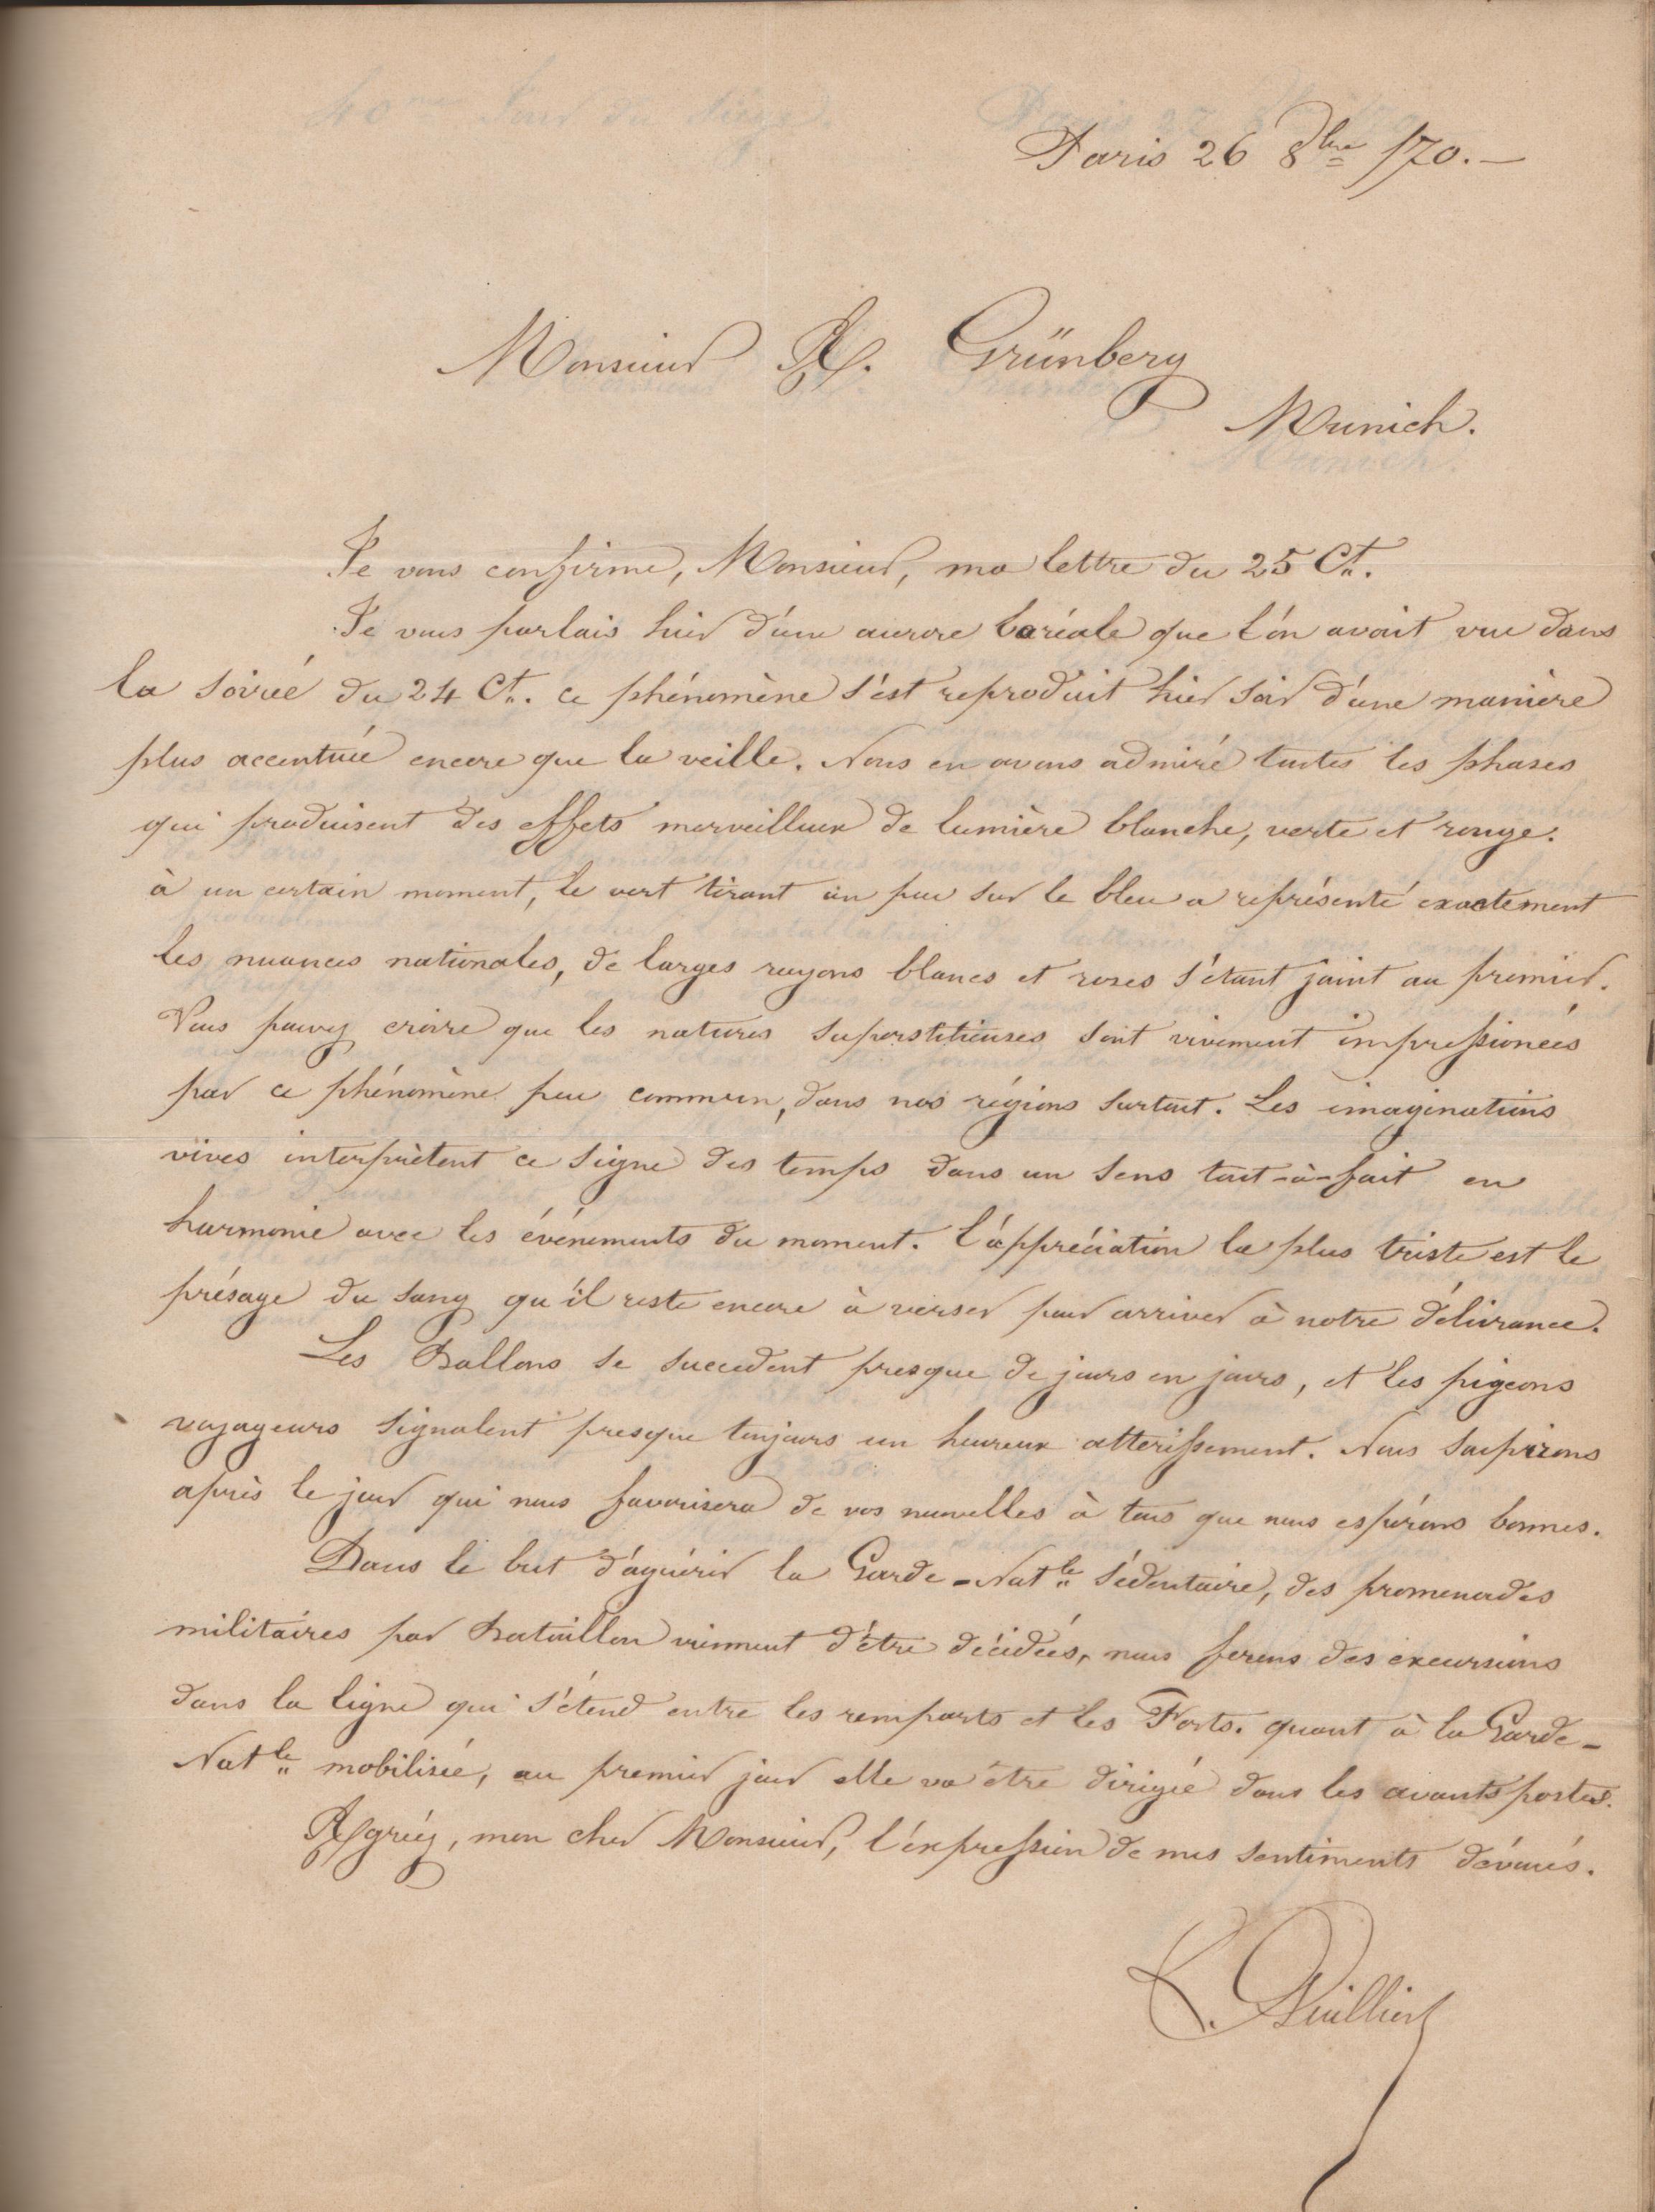 Paris 26 8bre /70. —
Monsieur A. Grünberg
Munich.
Je vous confirme, Monsieur, ma lettre du 25 Ct.
Je vous parlais hier d'une aurore boréale que l'on avait vue dans
la soirée du 24 Ct. ce phénomène s'est reproduit hier soir d'une manière
plus accentuée encore que la veille. Nous en avons admiré toutes les phases
qui produisent des effets merveilleux de lumière blanche, verte et rouge.
à un certain moment, le vert tirant un peu sur le bleu a représenté exactement
les nuances nationales, de larges rayons blancs et roses s'étant joint au premier.
Vous pouvez croire que les natures superstitieuses sont vivement impressionées
par ce phénomène peu commun, dans nos régions surtout. Les imaginations
vives interprètent ce signe des temps dans un sens tout-à-fait en
harmonie avec les événements du moment. l'appréciation la plus triste est le
présage du sang qu'il reste encore à verser pour arriver à notre délivrance.
Les Ballons se succedent presque de jours en jours, et les pigeons
voyageurs signalent presque toujours un heureux atterissement. Nous soupirons
après le jour qui nous favorisera de vos nouvelles à tous que nous espérons bonnes.
Dans le but d'aguérir la Garde-Natle sédentaire, des promenades
militaires par Bataillon viennent d'être décidées, nous ferons des excursions
dans la ligne qui s'étend entre les remparts et les Forts. quant à la Garde-
Natle mobilisée, au premier jour elle va être dirigée dans les avants postes.
Agréez, mon cher Monsieur, l'expression de mes sentiments dévoués.